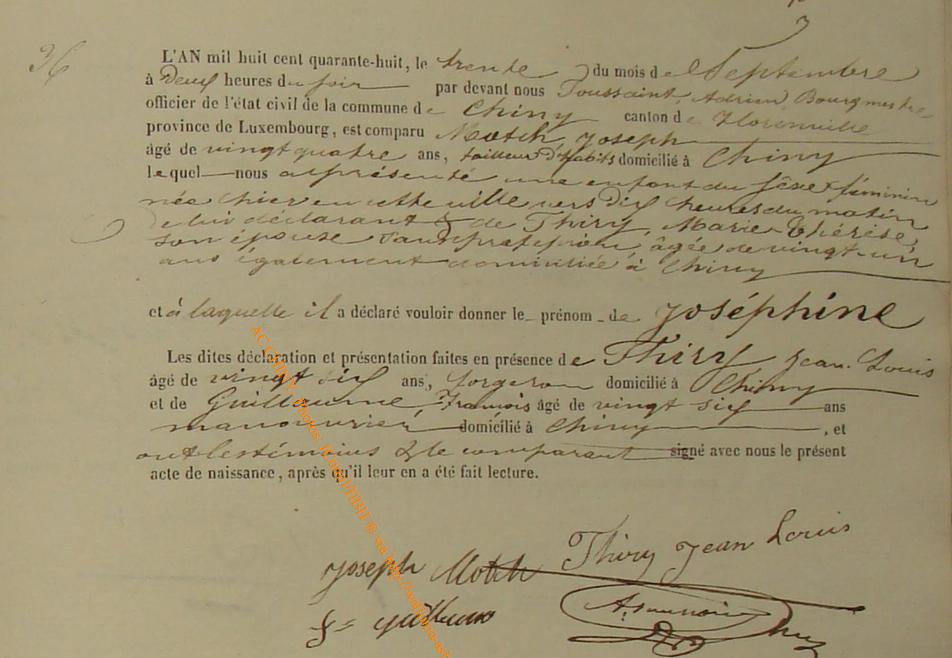 36
L'AN mil huit cent quarante-huit, le trente du mois de Septembre
à Deux heures du soir par devant nous Toussaint, Adrien, Bourgmestre
officier de l'état civil de la commune de Chiny canton de Florenville
province de Luxembourg, est comparu Motch, Joseph
âgé de vingt quatre ans, tailleur d'habits domicilié à Chiny
lequel nous a présenté une enfant du sexe féminin
née hier en cette ville vers dix heures du matin
de lui déclarant & de Thiry, Marie Thérèse,
son épouse sans profession, âgée de vingt-un
ans également domiciliée à Chiny
et à laquelle il a déclaré vouloir donner le prénom de Joséphine
Les dites déclaration et présentation faites en présence de Thiry Jean Louis
âgé de vingt six ans, forgeron domicilié à Chiny
et de Guillaume François âgé de vingt six ans
manouvrier domicilié à Chiny, et
ont les témoins & le comparant signé avec nous le présent
acte de naissance, après qu'il leur en a été fait lecture.
Joseph Motch Thiry Jean Louis